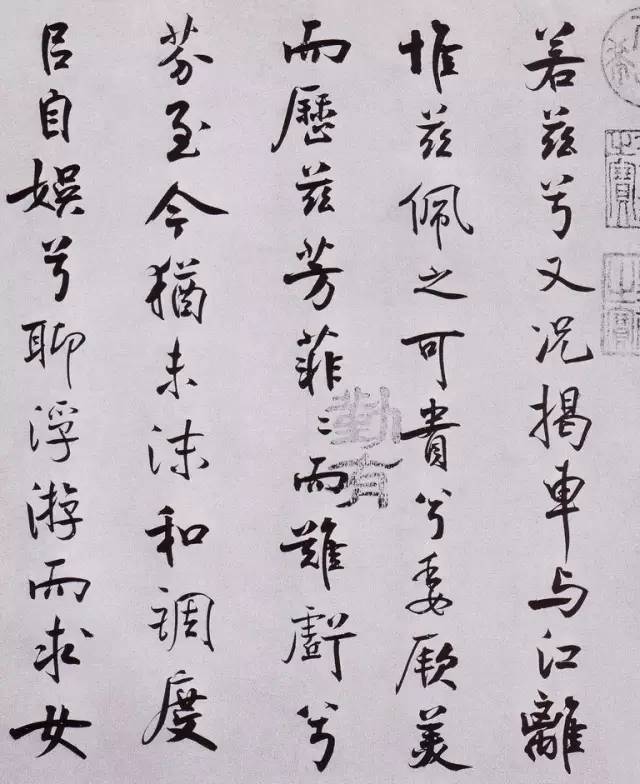 若茲兮又况揭車与江離
惟茲佩之可貴兮委厥美
而歷茲芳菲〻而難虧兮
芬至今猶未沬和調度
㠯自娛兮聊浮游而求女
勤有